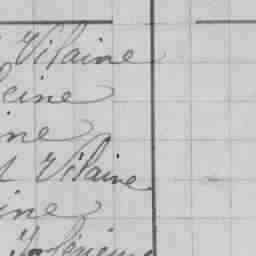 Vilaine
eine
ine
t Vilaine
ine